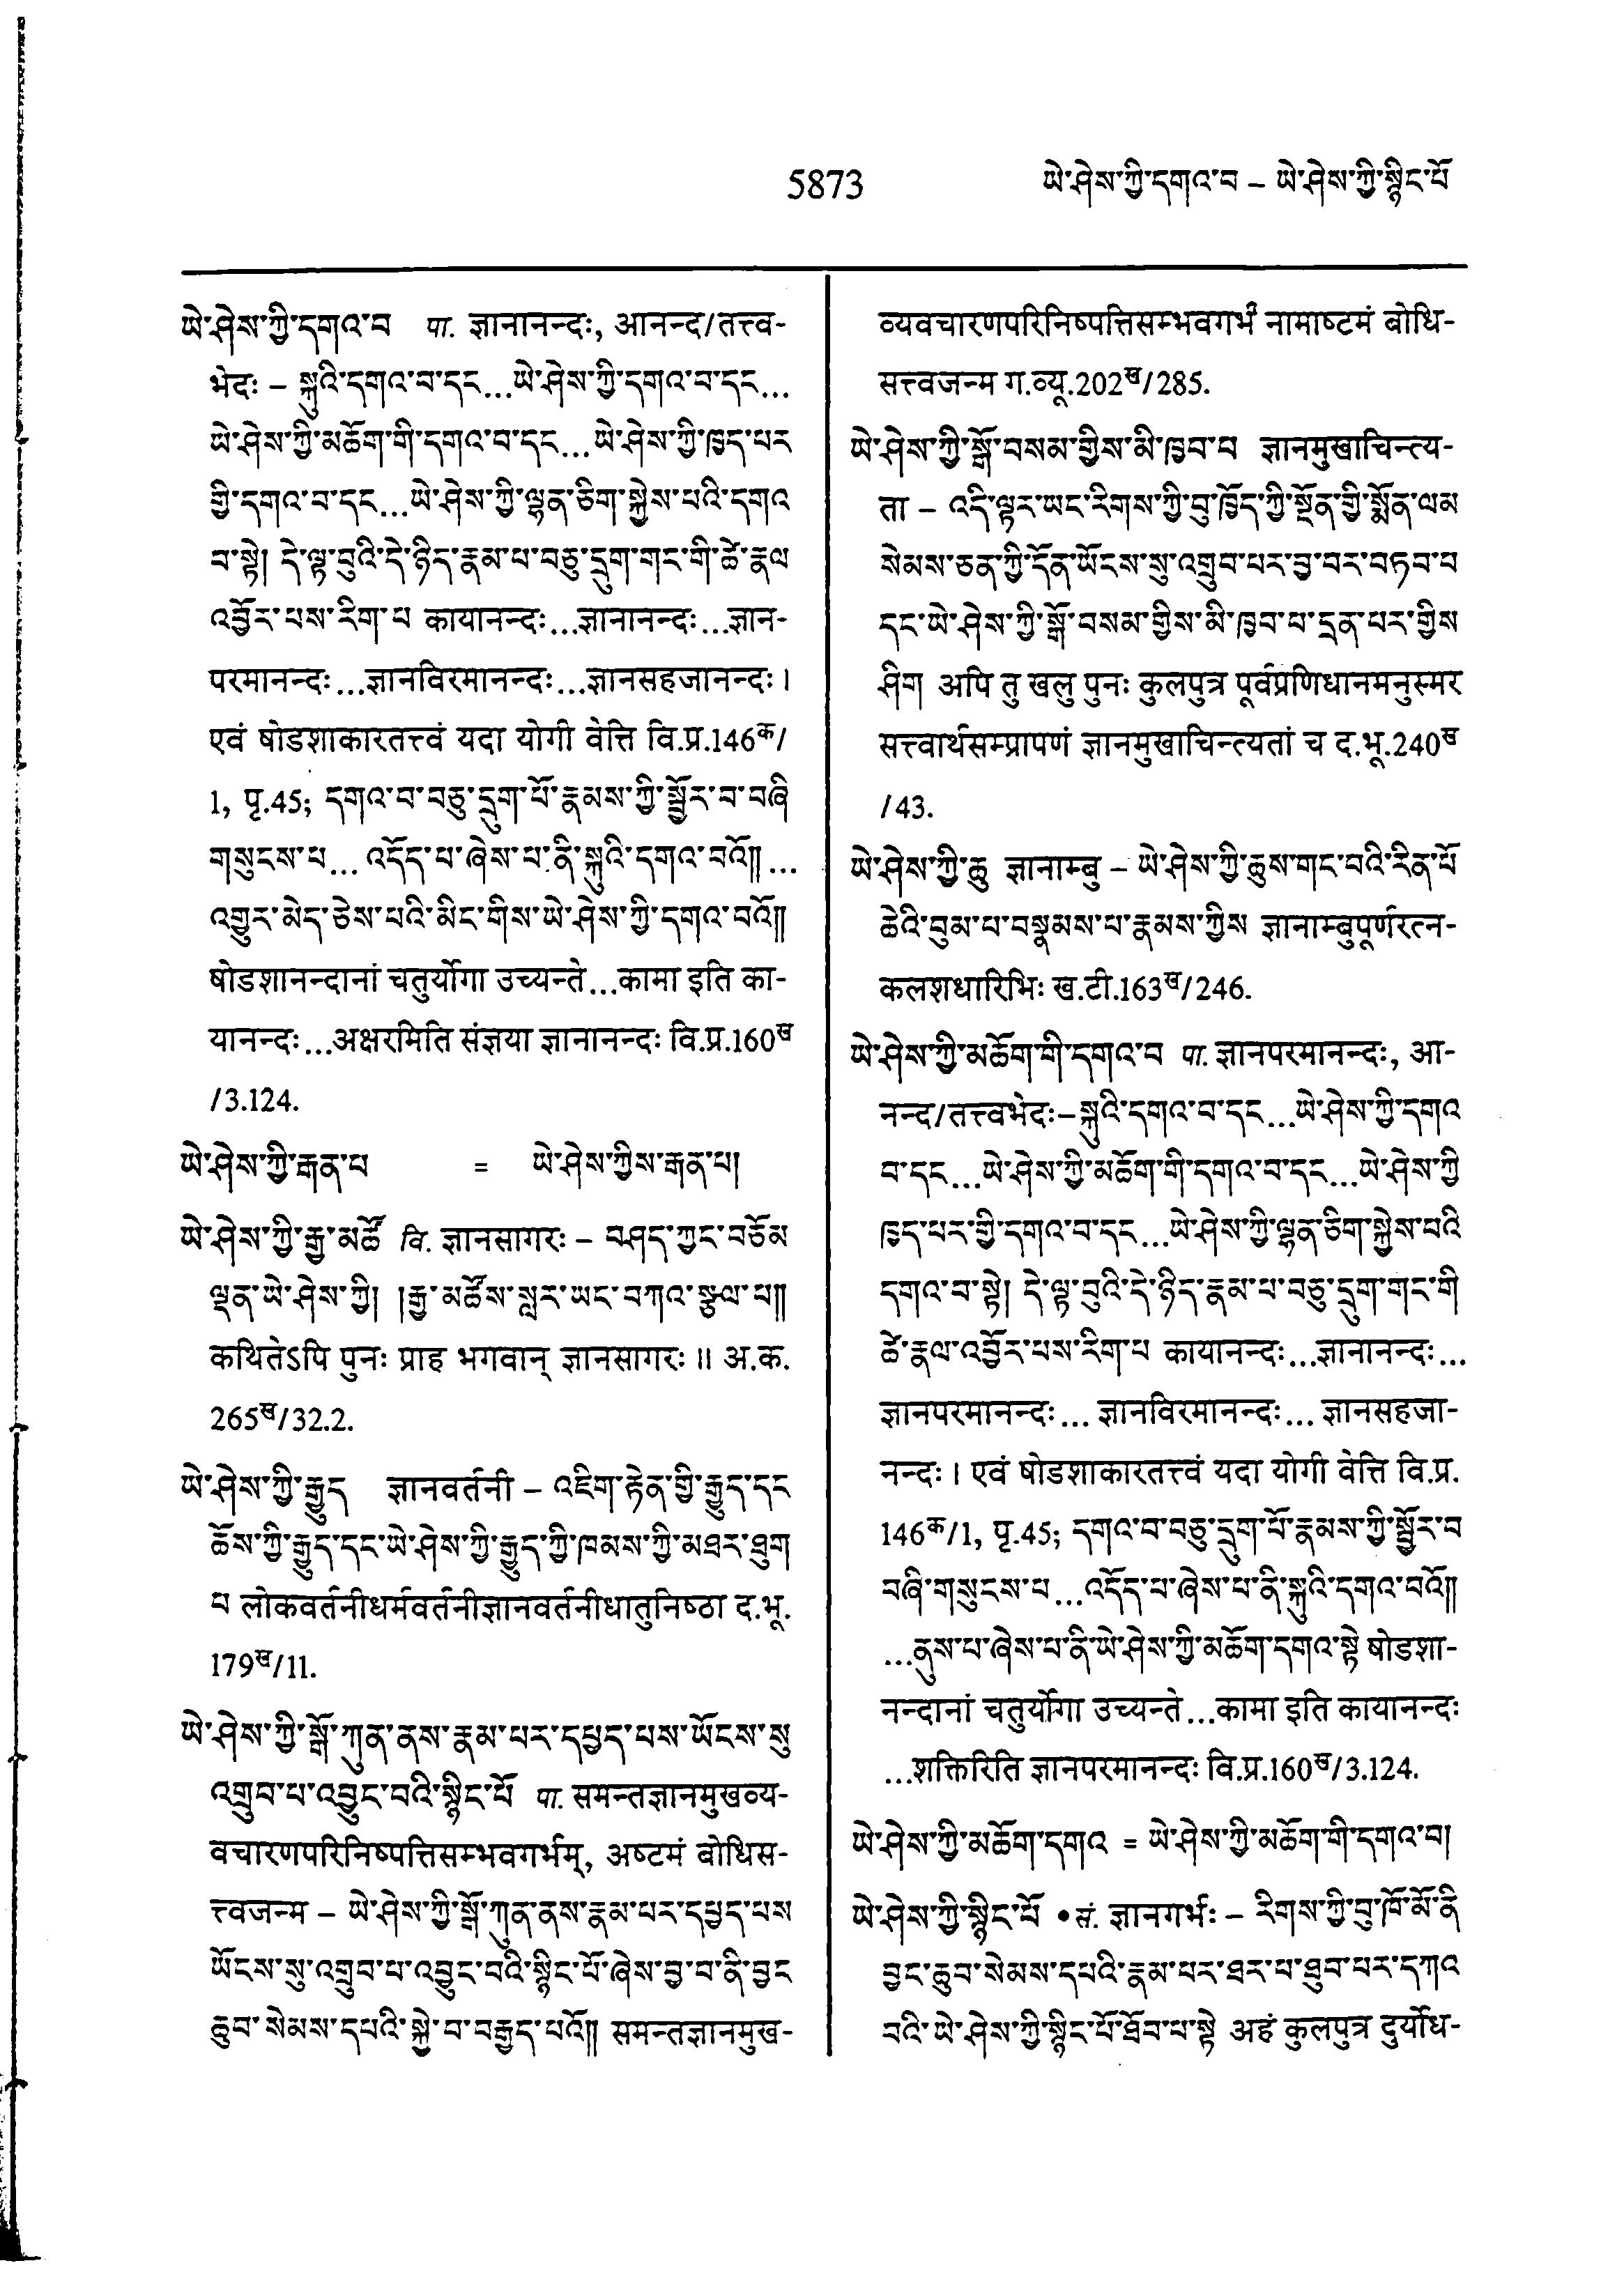 5873 ཡེ་ཤེས་ཀྱི་དགའ་བ – ཡེ་ཤེས་ཀྱི་སྙིང་པོ
ཡེ་ཤེས་ཀྱི་དགའ་བ པा. ज्ञानानन्दः, आनन्द/तत्त्व-
भेदः – སྐུའི་དགའ་བ་དང...ཡེ་ཤེས་ཀྱི་དགའ་བ་དང...
ཡེ་ཤེས་ཀྱི་མཆོག་གི་དགའ་བ་དང...ཡེ་ཤེས་ཀྱི་ཁྱད་པར
གྱི་དགའ་བ་དང...ཡེ་ཤེས་ཀྱི་ལྷན་ཅིག་སྐྱེས་པའི་དགའ
བ་སྟེ། དེ་ལྟ་བུའི་དེ་ཉིད་རྣམ་པ་བཅུ་དྲུག་གང་གི་ཚེ་རྣལ
འབྱོར་པས་རིག་པ कायानन्दः...ज्ञानानन्दः...ज्ञान-
परमानन्दः...ज्ञानविरमानन्दः...ज्ञानसहजानन्दः।
एवं षोडशाकारतत्त्वं यदा योगी वेत्ति वि.प्र.146क/
1, पृ.45; དགའ་བ་བཅུ་དྲུག་པོ་རྣམས་ཀྱི་སྦྱོར་བ་བཞི
གསུངས་པ... འདོད་པ་ཞེས་པ་ནི་སྐུའི་དགའ་བའོ༎...
འགྱུར་མེད་ཅེས་པའི་མིང་གིས་ཡེ་ཤེས་ཀྱི་དགའ་བའོ༎
षोडशानन्दानां चतुर्योगा उच्यन्ते...कामा इति का-
यानन्दः...अक्षरमिति संज्ञया ज्ञानानन्दः वि.प्र.160ख
/3.124.
ཡེ་ཤེས་ཀྱི་རྒན་པ = ཡེ་ཤེས་ཀྱིས་རྒན་པ།
ཡེ་ཤེས་ཀྱི་རྒྱ་མཚོ वि. ज्ञानसागरः – བཤད་ཀྱང་བཅོམ
ལྡན་ཡེ་ཤེས་ཀྱི། །རྒྱ་མཚོས་སླར་ཡང་བཀའ་སྩལ་པ༎
कथितेऽपि पुनः प्राह भगवान् ज्ञानसागरः॥ अ.क.
265ख/32.2.
ཡེ་ཤེས་ཀྱི་རྒྱུད ज्ञानवर्तनी – འཇིག་རྟེན་གྱི་རྒྱུད་དང
ཆོས་ཀྱི་རྒྱུད་དང་ཡེ་ཤེས་ཀྱི་རྒྱུད་ཀྱི་ཁམས་ཀྱི་མཐར་ཐུག
པ लोकवर्तनीधर्मवर्तनीज्ञानवर्तनीधातुनिष्ठा द.भू.
179ख/11.
ཡེ་ཤེས་ཀྱི་སྒོ་ཀུན་ནས་རྣམ་པར་དཔྱད་པས་ཡོངས་སུ
འགྲུབ་པ་འབྱུང་བའི་སྙིང་པོ पा. समन्तज्ञानमुखव्य-
वचारणपरिनिष्पत्तिसम्भवगर्भम्, अष्टमं बोधिस-
त्त्वजन्म – ཡེ་ཤེས་ཀྱི་སྒོ་ཀུན་ནས་རྣམ་པར་དཔྱད་པས
ཡོངས་སུ་འགྲུབ་པ་འབྱུང་བའི་སྙིང་པོ་ཞེས་བྱ་བ་ནི་བྱང
ཆུབ་སེམས་དཔའི་སྐྱེ་བ་བརྒྱད་པའོ༎ समन्तज्ञानमुख-
व्यवचारणपरिनिष्पत्तिसम्भवगर्भं नामाष्टमं बोधि-
सत्त्वजन्म ग.व्यू.202ख/285.
ཡེ་ཤེས་ཀྱི་སྒོ་བསམ་གྱིས་མི་ཁྱབ་པ ज्ञानमुखाचिन्त्य-
ता – འདི་ལྟར་ཡང་རིགས་ཀྱི་བུ་ཁྱོད་ཀྱི་སྔོན་གྱི་སྨོན་ལམ
སེམས་ཅན་ཀྱི་དོན་ཡོངས་སུ་འགྲུབ་པར་བྱ་བར་བཏབ་པ
དང་ཡེ་ཤེས་ཀྱི་སྒོ་བསམ་གྱིས་མི་ཁྱབ་པ་དྲན་པར་གྱིས
ཤིག अपि तु खलु पुनः कुलपुत्र पूर्वप्रणिधानमनुस्मर
सत्त्वार्थसम्प्रापणं ज्ञानमुखाचिन्त्यतां च द.भू.240ख
/43.
ཡེ་ཤེས་ཀྱི་ཆུ ज्ञानाम्बु – ཡེ་ཤེས་ཀྱི་ཆུས་གང་བའི་རིན་པོ
ཆེའི་བུམ་པ་བསྣམས་པ་རྣམས་ཀྱིས ज्ञानाम्बुपूर्णरत्न-
कलशधारिभिः ख.टी.163ख/246.
ཡེ་ཤེས་ཀྱི་མཆོག་གི་དགའ་བ पा. ज्ञानपरमानन्दः, आ-
नन्द/तत्त्वभेदः–སྐུའི་དགའ་བ་དང...ཡེ་ཤེས་ཀྱི་དགའ
བ་དང...ཡེ་ཤེས་ཀྱི་མཆོག་གི་དགའ་བ་དང...ཡེ་ཤེས་ཀྱི
ཁྱད་པར་གྱི་དགའ་བ་དང...ཡེ་ཤེས་ཀྱི་ལྷན་ཅིག་སྐྱེས་པའི
དགའ་བ་སྟེ། དེ་ལྟ་བུའི་དེ་ཉིད་རྣམ་པ་བཅུ་དྲུག་གང་གི
ཚེ་རྣལ་འབྱོར་པས་རིག་པ कायानन्दः...ज्ञानानन्दः...
ज्ञानपरमानन्दः... ज्ञानविरमानन्दः... ज्ञानसहजा-
नन्दः। एवं षोडशाकारतत्त्वं यदा योगी वेत्ति वि.प्र.
146क/1, पृ.45; དགའ་བ་བཅུ་དྲུག་པོ་རྣམས་ཀྱི་སྦྱོར་བ
བཞི་གསུངས་པ...འདོད་པ་ཞེས་པ་ནི་སྐུའི་དགའ་བའོ༎
...ནུས་པ་ཞེས་པ་ནི་ཡེ་ཤེས་ཀྱི་མཆོག་དགའ་སྟེ षोडशा-
नन्दानां चतुर्योगा उच्यन्ते...कामा इति कायानन्दः
...शक्तिरिति ज्ञानपरमानन्दः वि.प्र.160ख/3.124.
ཡེ་ཤེས་ཀྱི་མཆོག་དགའ = ཡེ་ཤེས་ཀྱི་མཆོག་གི་དགའ་བ།
ཡེ་ཤེས་ཀྱི་སྙིང་པོ •सं. ज्ञानगर्भः – རིགས་ཀྱི་བུ་ཁོ་མོ་ནི
བྱང་ཆུབ་སེམས་དཔའི་རྣམ་པར་ཐར་པ་ཐུབ་པར་དཀའ
བའི་ཡེ་ཤེས་ཀྱི་སྙིང་པོ་ཐོབ་པ་སྟེ अहं कुलपुत्र दुर्योध-